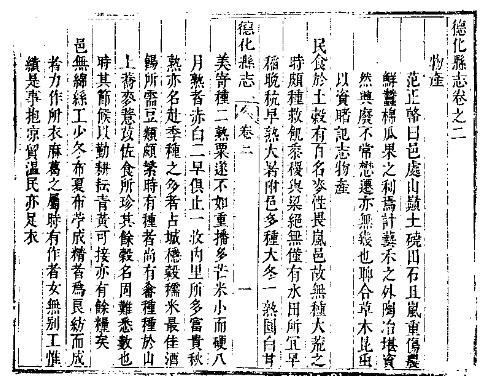 德化縣志卷之二
物產
范正辂曰邑處山谿土磽田石且嵐重傷農
鮮蠶棉瓜果之利為計藝禾之外陶冶堪資
然興廢不常懋遷亦無幾也聊合草木昆虫
以資記志物產
民食於土穀有百名麥性畏嵐邑故無種大荒之
時頗種救飢黍稷與粱絕無僅有水田所宜早
稻晚秔早熟大暑附邑多種大冬一熟圓白甘
德化縣志 卷二 一
美苛種二熟粟遂不如重播多芒米小而硬八
月熟者赤白二早俱止一收內里所多富貴秋
熟亦名赴季種之多者占城穩穀糯米最佳酒
餳所需豆類頗繁時有種者尚有畬種種於山
上蕎麥薏苡佐食所珍其餘穀名固難悉數也
時其節候以勤耕耘青黃可接亦有餘糧矣
邑無綿絲工少冬布夏布苧成精者為艮紡而成
者力作所衣麻葛之屬時有作者女無別工惟
績是事抱凉貿温民亦足衣